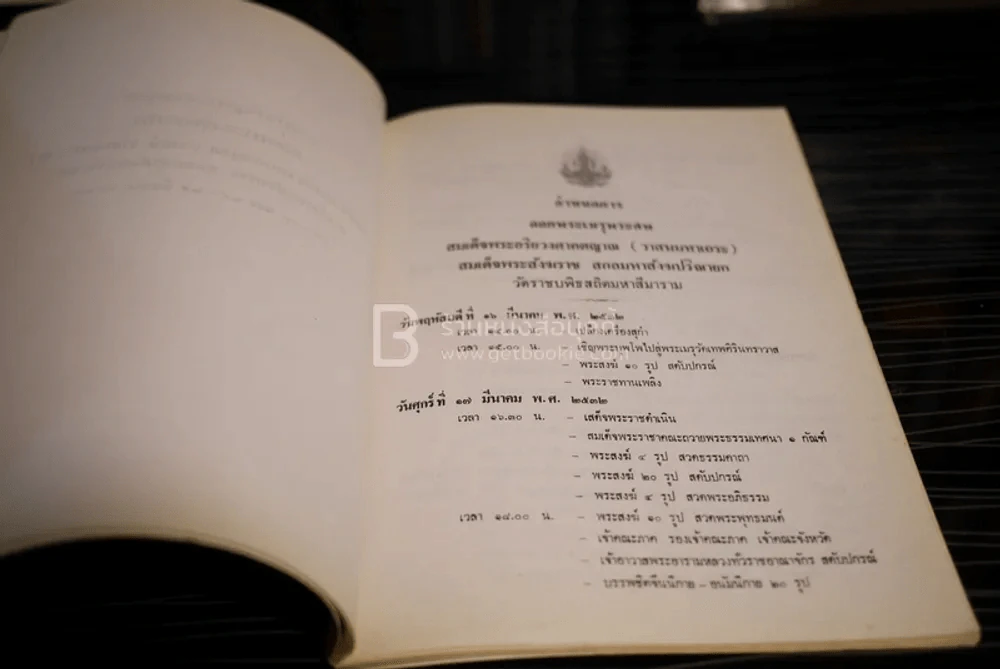 กำหนดการ
ออกพระเมรุพระศพ
สมเด็จพระอริยวงศาคตญาณ ( วาสนมหาเถระ )
สมเด็จพระสังฆราช สกลมหาสังฆปริณายก
วัดราชบพิธสถิตมหาสีมาราม
วันพฤหัสบดีที่ ๑๖ มีนาคม พ.ศ. ๒๕๓๒
เวลา น. – เปลื้องเครื่องสุกำ
เวลา ๑๕.๐๐ น. – เชิญพระบุพโพไปสู่พระเมรุวัดเทพศิรินทราวาส
– พระสงฆ์ ๑๐ รูป สดับปกรณ์
– พระราชทานเพลิง
วันศุกร์ที่ ๑๗ มีนาคม พ.ศ. ๒๕๓๒
เวลา ๑๖.๓๐ น. – เสด็จพระราชดำเนิน
– สมเด็จพระราชาคณะถวายพระธรรมเทศนา ๑ กัณฑ์
– พระสงฆ์ ๔ รูป สวดธรรมคาถา
– พระสงฆ์ ๒๐ รูป สดับปกรณ์
– พระสงฆ์ ๔ รูป สวดพระอภิธรรม
เวลา ๑๘.๐๐ น. – พระสงฆ์ ๑๐ รูป สวดพระพุทธมนต์
– เจ้าคณะภาค รองเจ้าคณะภาค เจ้าคณะจังหวัด
– เจ้าอาวาสพระอารามหลวงทั่วราชอาณาจักร สดับปกรณ์
– บรรพชิตจีนนิกาย – อนัมนิกาย ๒๐ รูป
B ร้านหนังสือบุ๊คกี้
www.getbookie.com